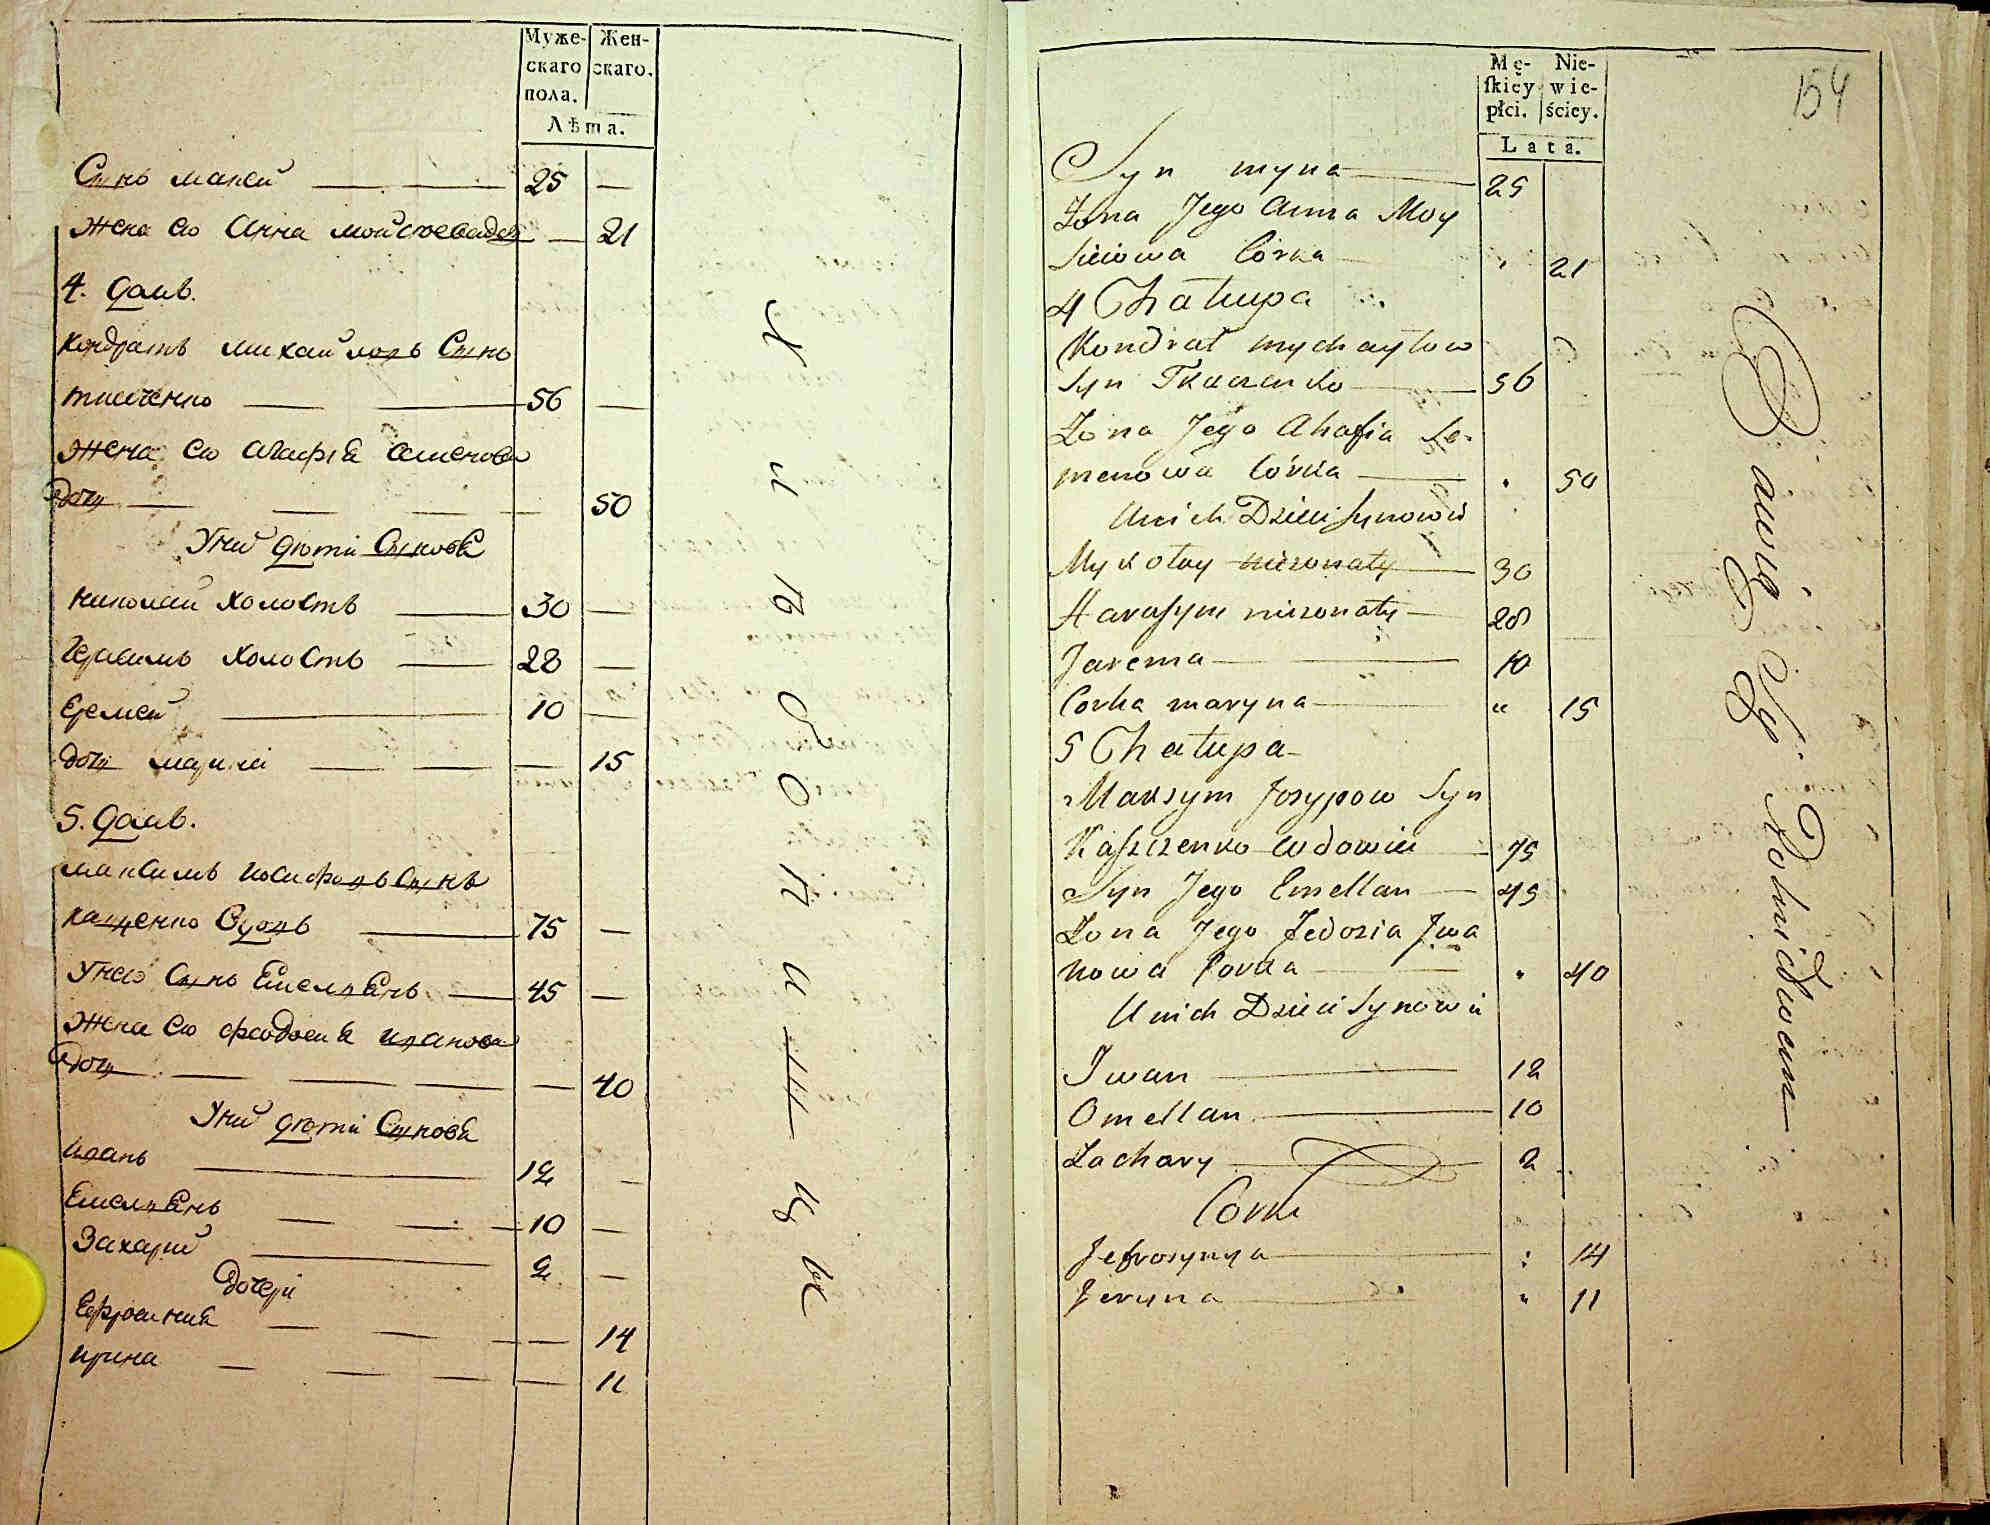 Муже- Жен-
скаго скаго.
пола.
Лѣта.
Сынъ макей 25 —
Жена ево Анна мойсеева дочь — 21
4. Домъ.
Кондратъ михайловъ Сынъ
ткаченко 56 —
Жена ево агафиа семенова
дочь — 50
У них дѣти Сыновя
николай холостъ 30 —
Герасимъ холостъ 28 —
Еремей 10 —
дочь марина — 15
5. Домъ.
максимъ иосифовъ Сынъ
кащенко Вдовъ 75 —
У нево Сынъ Емельянъ 45 —
Жена ево феодосия иванова
дочь — 40
У них дѣти Сыновя
иванъ 12 —
Емельянъ 10 —
Захарий 2 —
дочери
Ефросиния — 14
ирина — 11
Живопищцы
Mę- Nie-
ſkiey wie-
płci. ściey.
Lata.
154
Syn 25
Żona Jego Anna Moy
sieiowa Corka 21
4 Chałupa
Kondrat mychayłow
Syn Tkaczenko 56
Żona Jego Ahafia Se-
menowa Córka 50
U nich Dzieci Synowie
Mykołay nieżonaty 30
Harasym nieżonaty 28
Jarema 10
Corka maryna 15
5 Chałupa
Maxsym Josypow Syn
Kaszczenko wdowiec 75
Syn Jego Emelian 45
Żona Jego Fedozia Iwa
nowa Corka 40
U nich Dzieci Synowie
Iwan 12
Omelian 10
Zachary 2
Corki
Jefrosynya 14
Jeryna 11
Bawią Się Rolnictwem